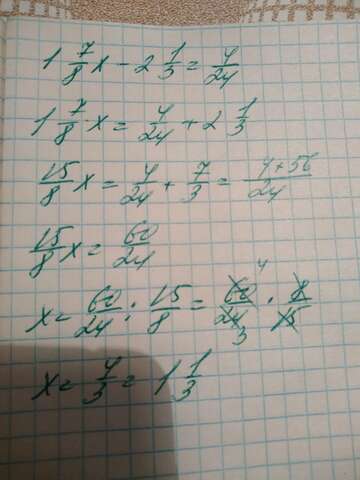 1 7/8 x - 2 1/3 = 4/24
1 7/8 x = 4/24 + 2 1/3
15/8 x = 4/24 + 7/3 = 4+56/24
15/8 x = 60/24
x = 60/24 : 15/8 = 60/24 · 8/15
4
3
x = 4/3 = 1 1/3